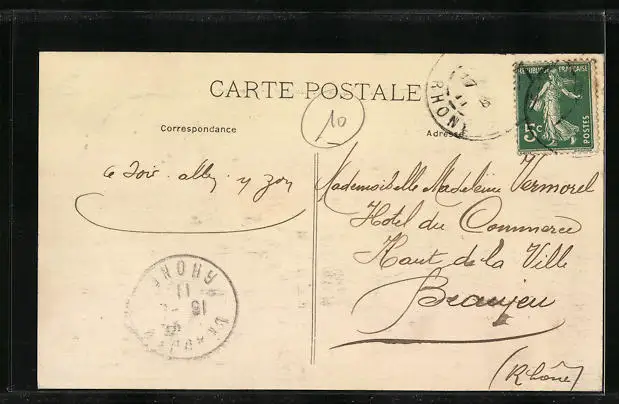 CARTE POSTALE
10
Correspondance
Adresse
RHONE
REPUBLIQUE FRANÇAISE
5c
POSTES
ce soir
y
Mademoiselle Madeleine Vermorel
Hotel du Commerce
Haut de la Ville
Beaujeu
(Rhône)
RHONE
11
16